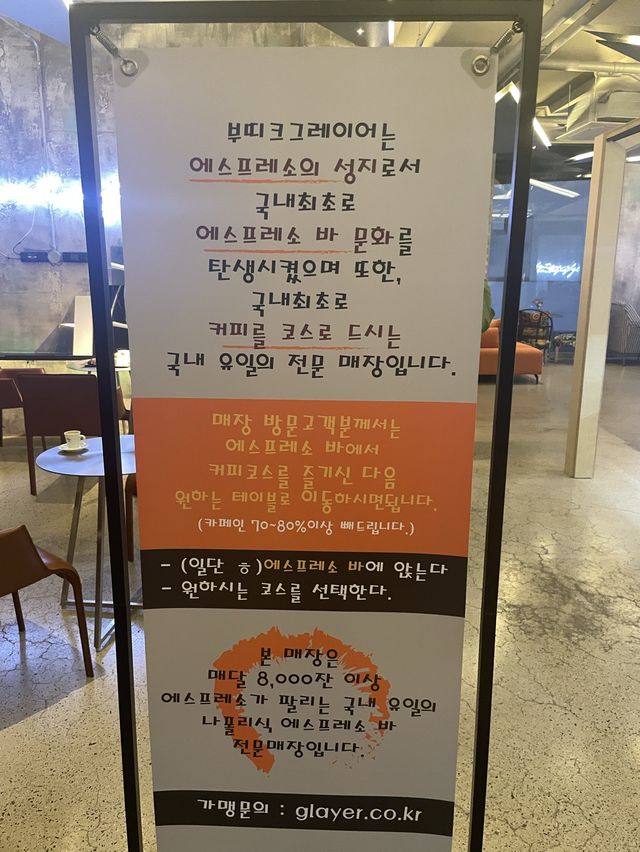 부띠크그레이어는
에스프레소의 성지로서
국내최초로
에스프레소 바 문화를
탄생시켰으며 또한,
국내최초로
커피를 코스로 드시는
국내 유일의 전문 매장입니다.
매장 방문고객분께서는
에스프레소 바에서
커피코스를 즐기신 다음
원하는 테이블로 이동하시면됩니다.
(카페인 70~80%이상 빼드립니다.)
- (일단 ㅎ)에스프레소 바에 앉는다
- 원하시는 코스를 선택한다.
본 매장은
매달 8,000잔 이상
에스프레소가 팔리는 국내 유일의
나폴리식 에스프레소 바
전문매장입니다.
가맹문의 : glayer.co.kr